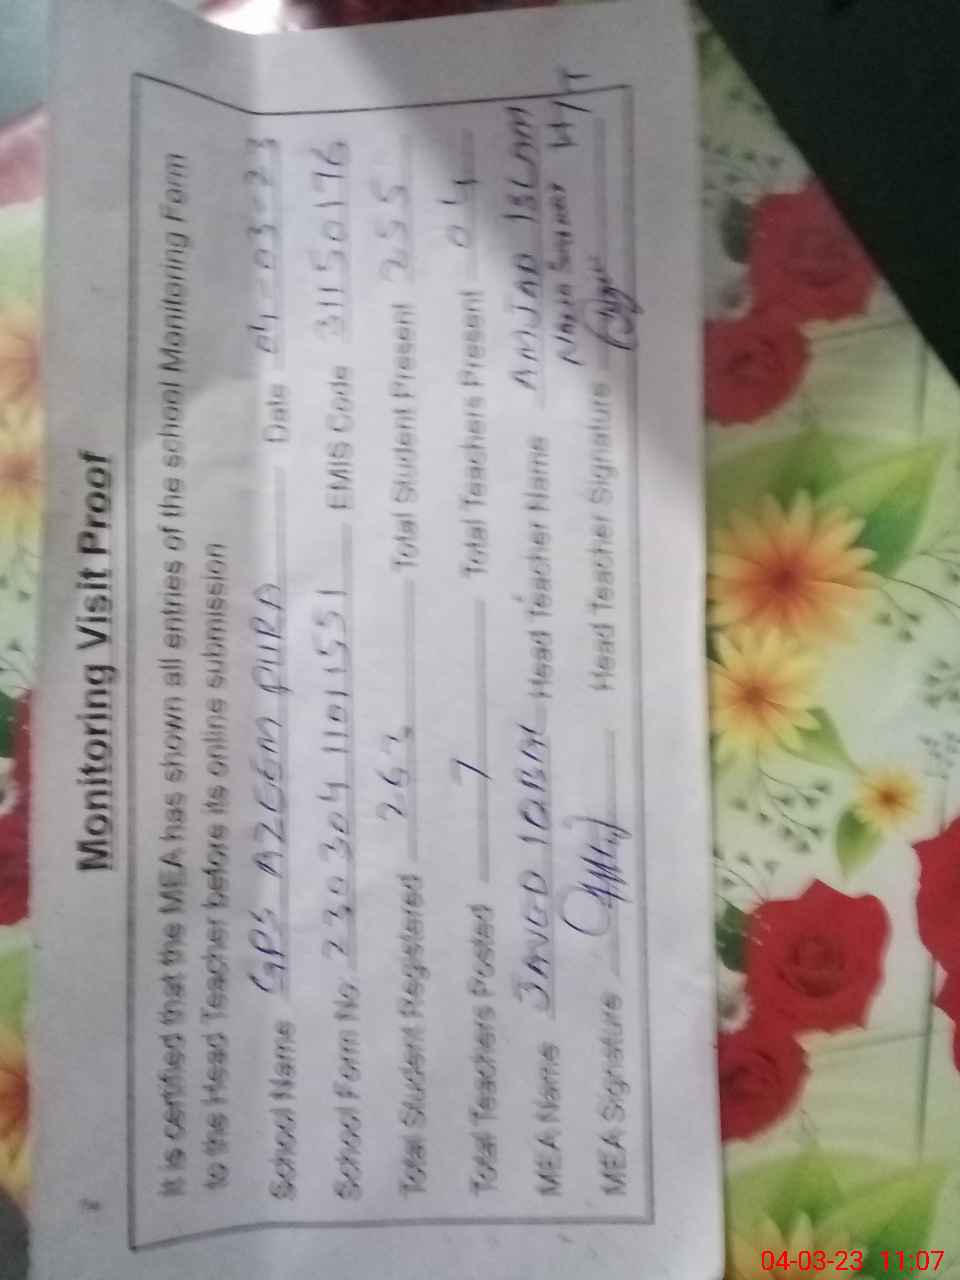 Monitoring Visit Proof
It is certified that the MEA has shown all entries of the school Monitoring Form
to the Head Teacher before its online submission
School Name GPS AZEEM PURA Date 04-03-23
School Form No. 2303041101551 EMIS Code 31150176
Total Student Registered 263 Total Student Present 255
Total Teachers Posted 7 Total Teachers Present 04
MEA Name JAVED IQBAL Head Teacher Name AMJAD ISLAM
H/T
MEA Signature Head Teacher Signature
04-03-23 11:07